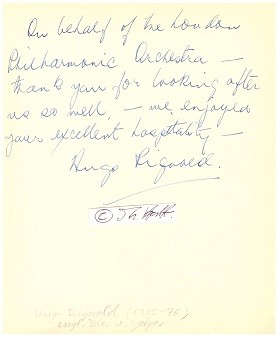 On behalf of the London
Philharmonic Orchestra —
thank you for looking after
us so well, — we enjoyed
your excellent hospitality —
Hugo Rignold.
©
Hugo Rignold (1905-76)
engl. Dir. u. Geiger